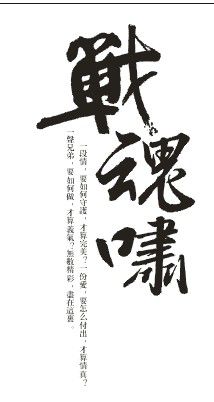 戰魂嘯
一段情，要如何守護，才算完美？一份愛，要怎么付出，才算情真？
一聲兄弟，要如何做，才算義氣？無數精彩，盡在這裏。